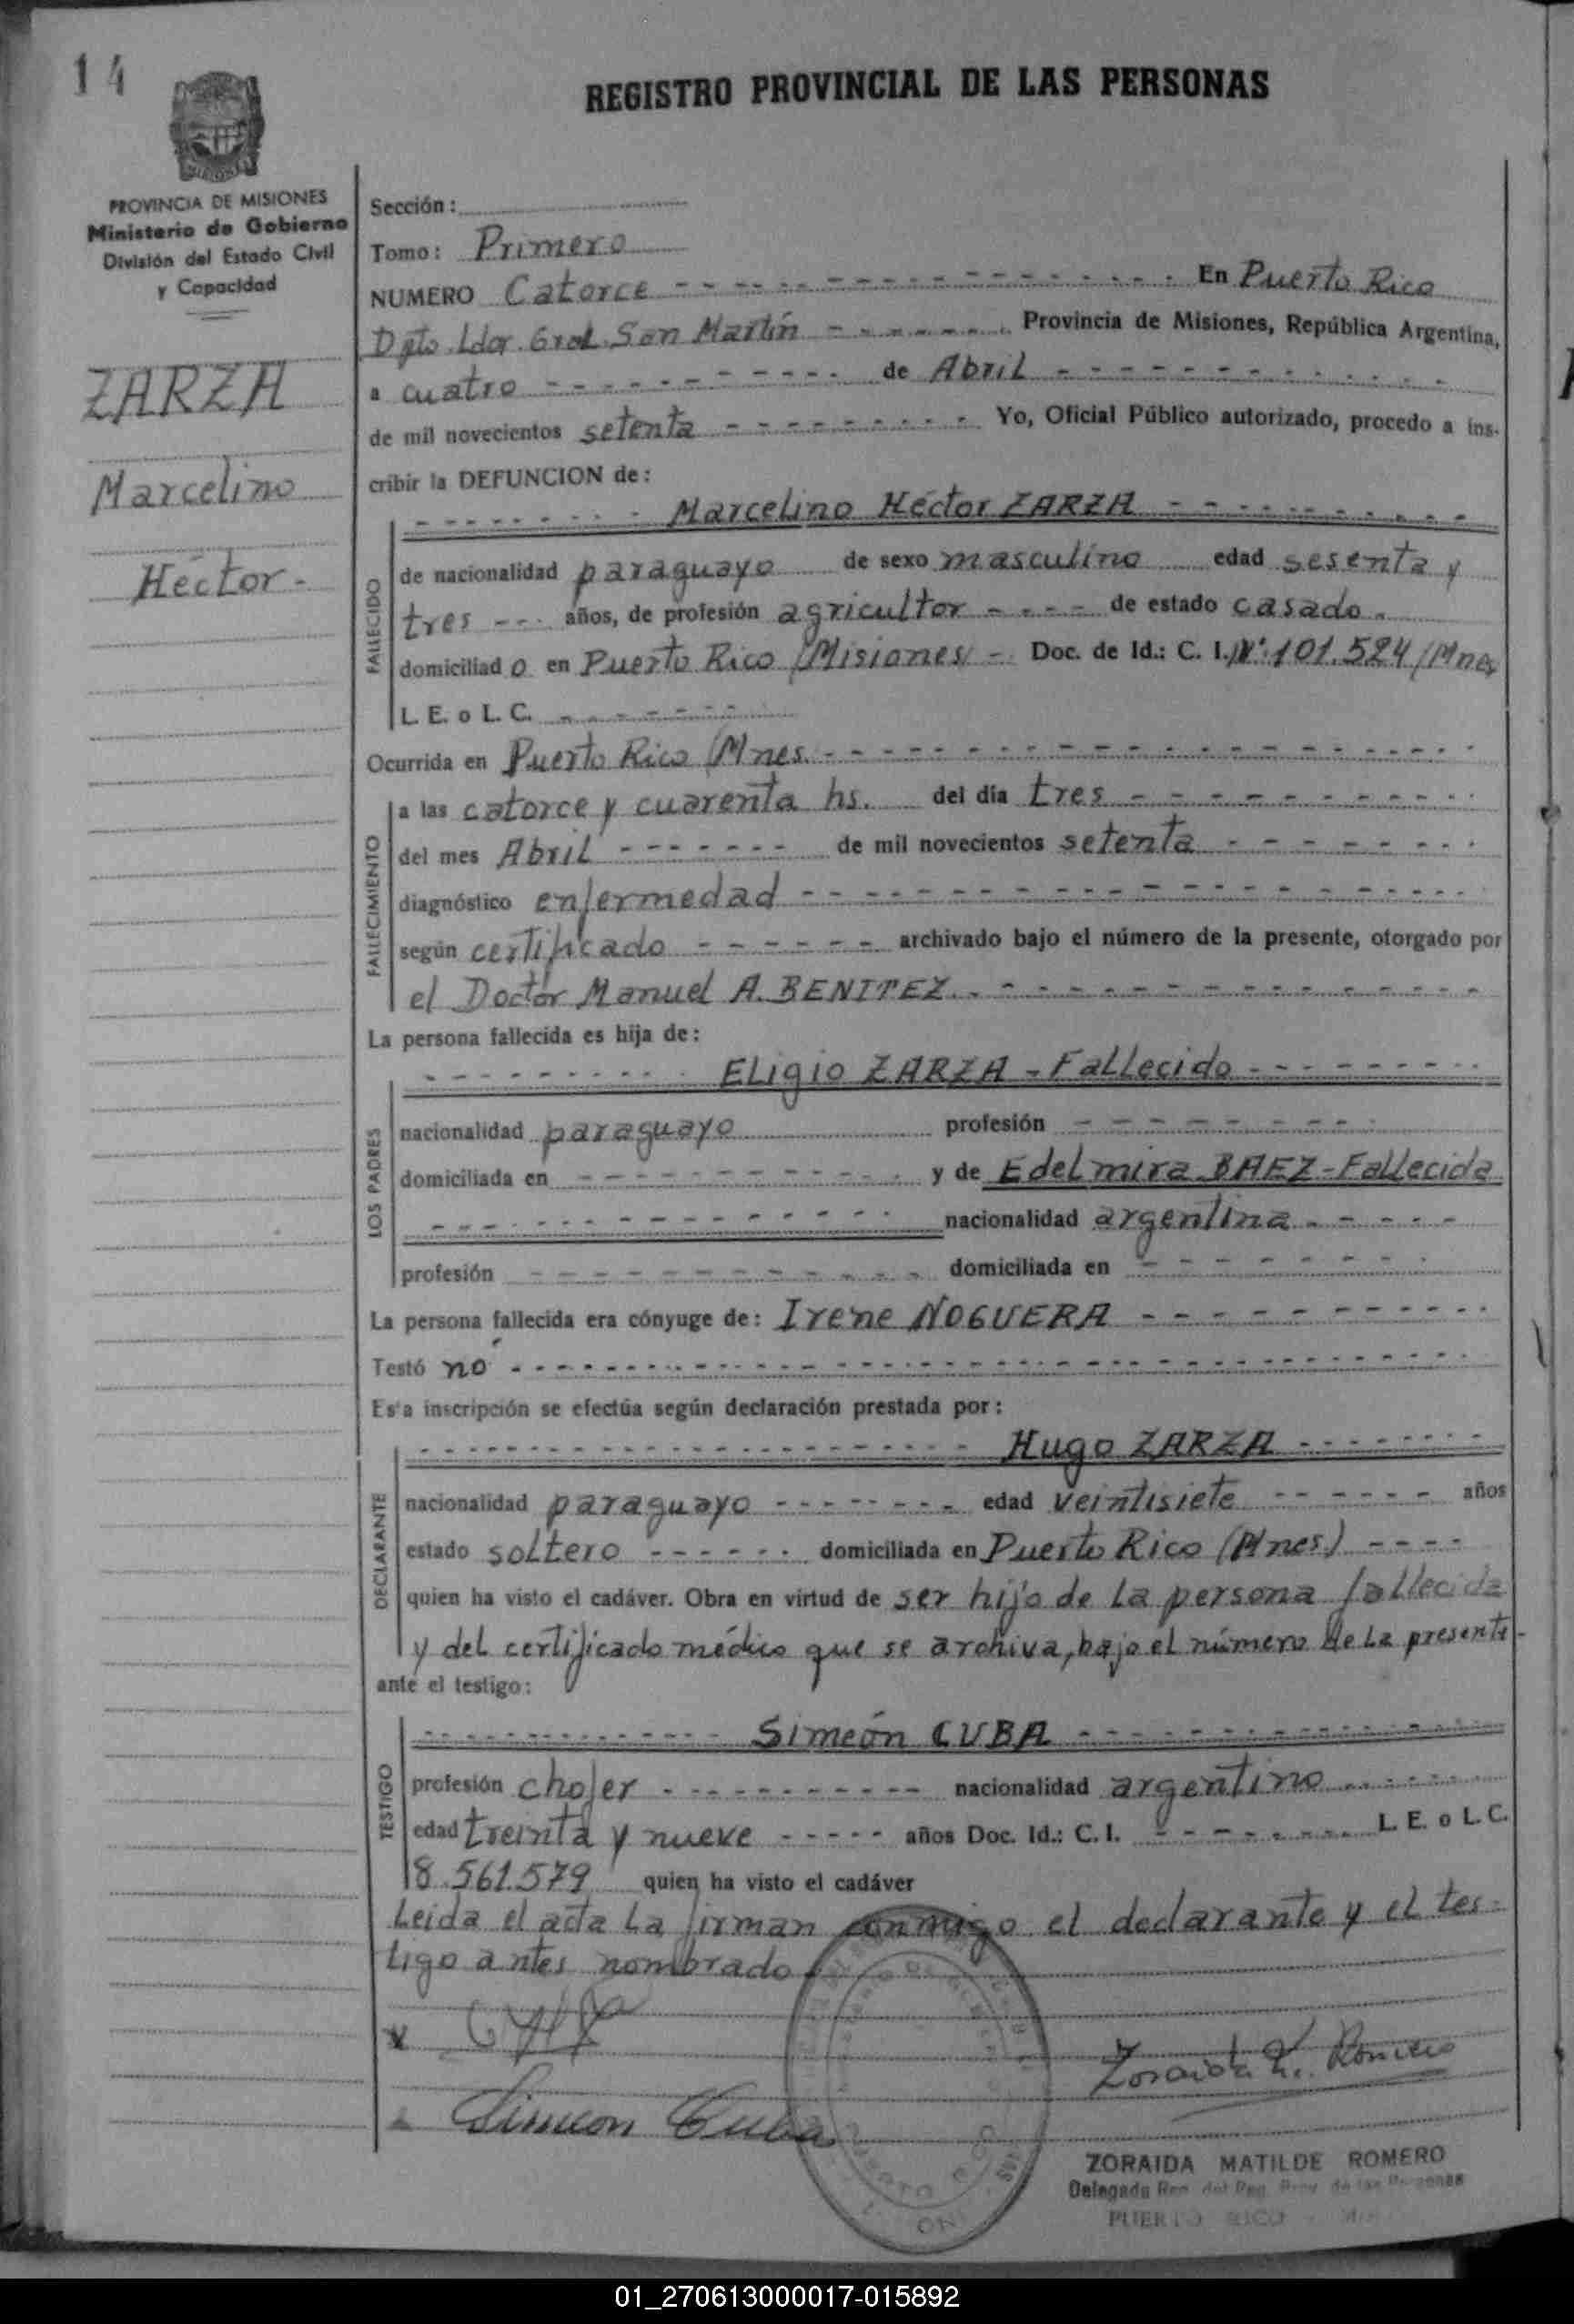 14
REGISTRO PROVINCIAL DE LAS PERSONAS
PROVINCIA DE MISIONES
Ministerio de Gobierno
División del Estado Civil
y Capacidad
ZARZA
Marcelino
Héctor -
Sección:
Tomo: Primero
NUMERO Catorce - - - En Puerto Rico
Dpto. Ldor. Gral. San Martín - - - Provincia de Misiones, República Argentina,
a cuatro - - - de Abril - - -
de mil novecientos setenta - - - Yo, Oficial Público autorizado, procedo a ins-
cribir la DEFUNCION de:
- - - Marcelino Héctor ZARZA - - -
FALLECIDO
de nacionalidad paraguayo de sexo masculino edad sesenta y
tres - - - años, de profesión agricultor - - - de estado casado.
domiciliado en Puerto Rico /Misiones/ - Doc. de Id.: C. I. Nº 101.524/Mnes
L. E. o L. C. - - -
Ocurrida en Puerto Rico /Mnes. - - -
FALLECIMIENTO
a las catorce y cuarenta hs. del día tres - - -
del mes Abril - - - de mil novecientos setenta - - -
diagnóstico enfermedad - - -
según certificado - - - archivado bajo el número de la presente, otorgado por
el Doctor Manuel A. BENITEZ. - - -
La persona fallecida es hija de:
- - - Eligio ZARZA - Fallecido - - -
LOS PADRES
nacionalidad paraguayo profesión - - -
domiciliada en - - - y de Edelmira BAEZ - Fallecida
- - - nacionalidad argentina - - -
profesión - - - domiciliada en - - -
La persona fallecida era cónyuge de: Irene NOGUERA - - -
Testó no - - -
Esta inscripción se efectúa según declaración prestada por:
- - - Hugo ZARZA - - -
DECLARANTE
nacionalidad paraguayo - - - edad veintisiete - - - años
estado soltero - - - domiciliada en Puerto Rico (Mnes) - - -
quien ha visto el cadáver. Obra en virtud de ser hijo de la persona fallecida
y del certificado médico que se archiva, bajo el número de la presente -
ante el testigo:
- - - Simeón CUBA - - -
TESTIGO
profesión chofer - - - nacionalidad argentino - - -
edad treinta y nueve - - - años Doc. Id.: C. I. - - - L. E. o L. C.
8.561.579 quien ha visto el cadáver
Leída el acta la firman conmigo el declarante y el tes-
tigo antes nombrado.
Zoraida M. Romero
Simeon Cuba
ZORAIDA MATILDE ROMERO
Delegada Reg. del Reg. Prov. de las Personas
PUERTO RICO
01_270613000017-015892